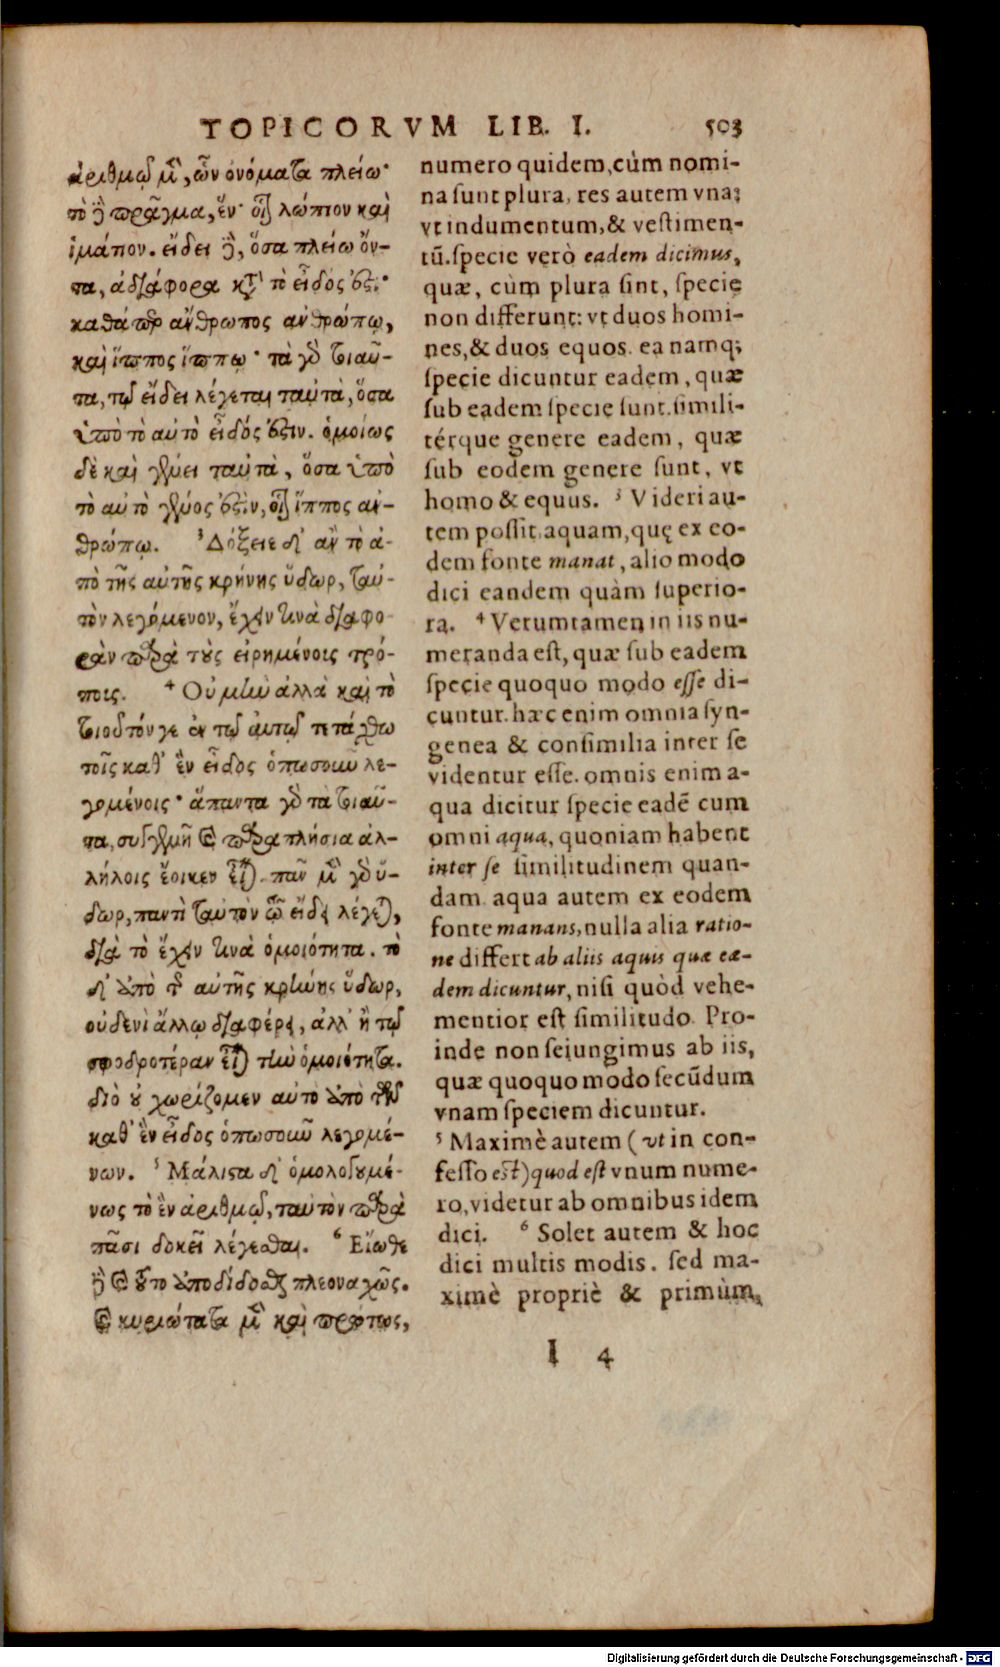 TOPICORVM LIB. I. 503
ἀριθμῷ μὲν, ὧν ὀνόματα πλείω·
τὸ δὲ πρᾶγμα, ἕν· οἷον λώπιον καὶ
ἱμάτιον. εἴδει δὲ, ὅσα πλείω ὄν-
τα, ἀδιάφορα κατὰ τὸ εἶδός ἐστι·
καθάπερ ἄνθρωπος ἀνθρώπῳ,
καὶ ἵππος ἵππῳ· τὰ γὰρ τοιαῦ-
τα, τῷ εἴδει λέγεται ταὐτὰ, ὅσα
ὑπὸ τὸ αὐτὸ εἶδός ἐστιν. ὁμοίως
δὲ καὶ γένει ταὐτὰ, ὅσα ὑπὸ
τὸ αὐτὸ γένος ἐστὶν, οἷον ἵππος ἀν-
θρώπῳ. ³ Δόξειε δ' ἂν τὸ ἀ-
πὸ τῆς αὐτῆς κρήνης ὕδωρ, ταὐ-
τὸν λεγόμενον, ἔχειν τινὰ διαφο-
ρὰν παρὰ τοὺς εἰρημένοις τρό-
ποις. ⁴ Οὐ μὴν ἀλλὰ καὶ τὸ
τοιοῦτόν γε ἐν τῷ αὐτῷ τετάχθω
τοῖς καθ' ἓν εἶδος ὁπωσοῦν λε-
γομένοις· ἅπαντα γὰρ τὰ τοιαῦ-
τα, συγγενῆ καὶ παραπλήσια ἀλ-
λήλοις ἔοικεν εἶναι. πᾶν μὲν γὰρ ὕ-
δωρ, παντὶ ταὐτὸν τῷ εἴδει λέγεται,
διὰ τὸ ἔχειν τινὰ ὁμοιότητα. τὸ
δ' ἀπὸ τῆς αὐτῆς κρήνης ὕδωρ,
οὐδενὶ ἄλλῳ διαφέρει, ἀλλ' ἢ τῷ
σφοδροτέραν εἶναι τὴν ὁμοιότητα.
διὸ οὐ χωρίζομεν αὐτὸ ἀπὸ τῶν
καθ' ἓν εἶδος ὁπωσοῦν λεγομέ-
νων. ⁵ Μάλιστα δ' ὁμολογουμέ-
νως τὸ ἓν ἀριθμῷ, ταὐτὸν παρὰ
πᾶσι δοκεῖ λέγεσθαι. ⁶ Εἴωθε
δὲ καὶ τοῦτο ἀποδίδοσθαι πλεοναχῶς.
καὶ κυριώτατα μὲν καὶ πρώτως,
numero quidem, cùm nomi-
na sunt plura, res autem vna;
vt indumentum, & vestimen-
tũ. specie verò eadem dicimus,
quæ, cùm plura sint, specie
non differunt: vt duos homi-
nes, & duos equos. ea namq;
specie dicuntur eadem, quæ
sub eadem specie sunt. simili-
térque genere eadem, quæ
sub eodem genere sunt, vt
homo & equus. ³ Videri au-
tem possit aquam, quę ex eo-
dem fonte manat, alio modo
dici eandem quàm superio-
ra. ⁴ Verumtamen in iis nu-
meranda est, quæ sub eadem
specie quoquo modo esse di-
cuntur. hæc enim omnia syn-
genea & consimilia inter se
videntur esse. omnis enim a-
qua dicitur specie eadẽ cum
omni aqua, quoniam habent
inter se similitudinem quan-
dam. aqua autem ex eodem
fonte manans, nulla alia ratio-
ne differt ab aliis aquis quæ eæ-
dem dicuntur, nisi quòd vehe-
mentior est similitudo. Pro-
inde non seiungimus ab iis,
quæ quoquo modo secũdum
vnam speciem dicuntur.
⁵ Maximè autem (vt in con-
fesso est) quod est vnum nume-
ro, videtur ab omnibus idem
dici. ⁶ Solet autem & hoc
dici multis modis. sed ma-
ximè propriè & primùm,
I 4
Digitalisierung gefördert durch die Deutsche Forschungsgemeinschaft - DFG